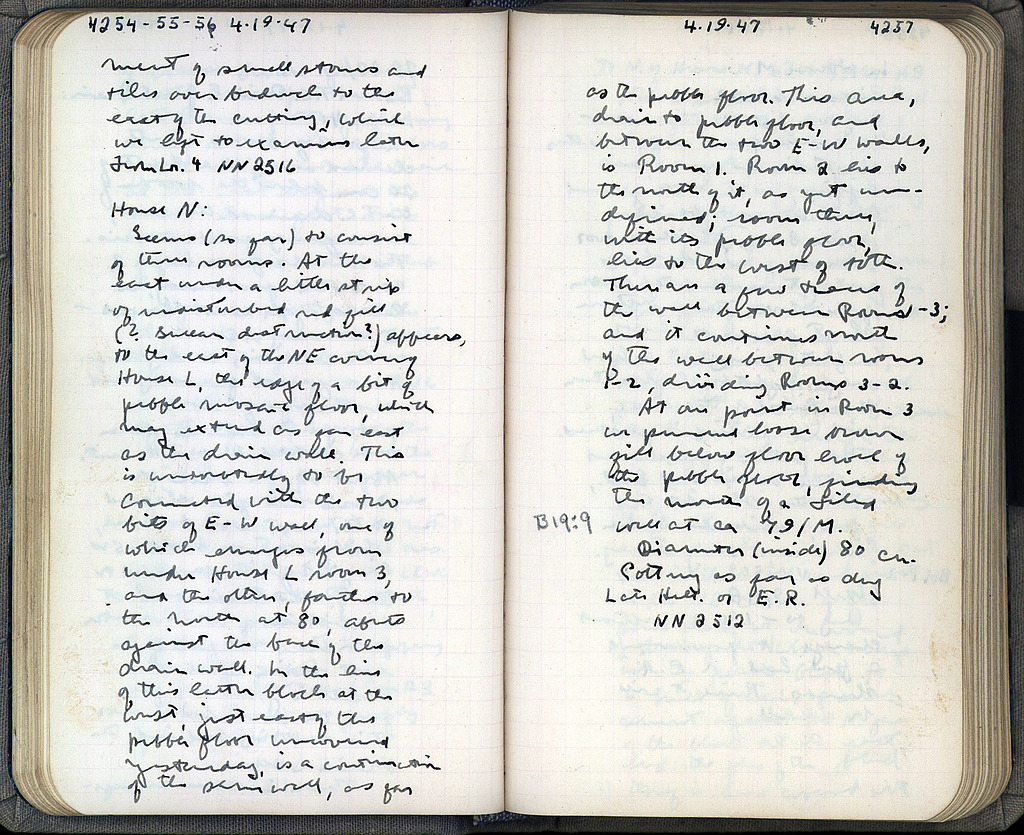 4254-55-56 4.19.47
ment of small stones and
tiles over bedrock to the
east of the cutting, which
we left to examine later
from Lot. 4 NN 2516
House N:
Seems (so far) to consist
of three rooms. At the
east under a little strip
of undisturbed red fill
(? Sullan destruction?) appears,
to the east of the NE corner of
House L, the edge of a bit of
pebble mosaic floor, which
may extend as far east
as the drain wall. This
is undoubtedly to be
connected with the two
bits of E-W wall, one of
which emerges from
under House L room 3,
and the other, farther to
the north at 80, abuts
against the back of the
drain wall. In the line
of this latter blocks at the
west, just east of the
pebble floor uncovered
yesterday, is a continuation
of the same wall, as far
4.19.47 4257
as the pebble floor. This area,
drain to pebble floor, and
between the two E-W walls,
is Room 1. Room 2 lies to
the north of it, as yet un-
defined; room three,
with its pebble floor,
lies to the west of both.
There are a few traces of
the wall between Rooms -3;
and it continues north
of the wall between rooms
1-2, dividing Rooms 3-2.
At one point in Room 3
we pursued loose brown
fill below floor level of
the pebble floor, finding
the mouth of a filled
B 19:9
well at ca 79/M.
Diameter (inside) 80 cm.
Pottery as far as dug
Late Hell. or E.R.
NN 2512